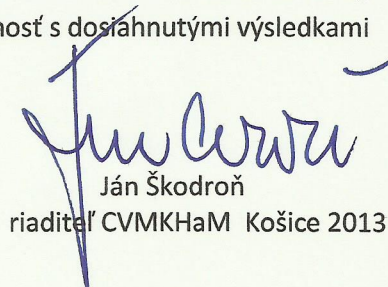 nosť s dosiahnutými výsledkami
Ján Škodroň
riaditeľ CVMKHaM Košice 2013